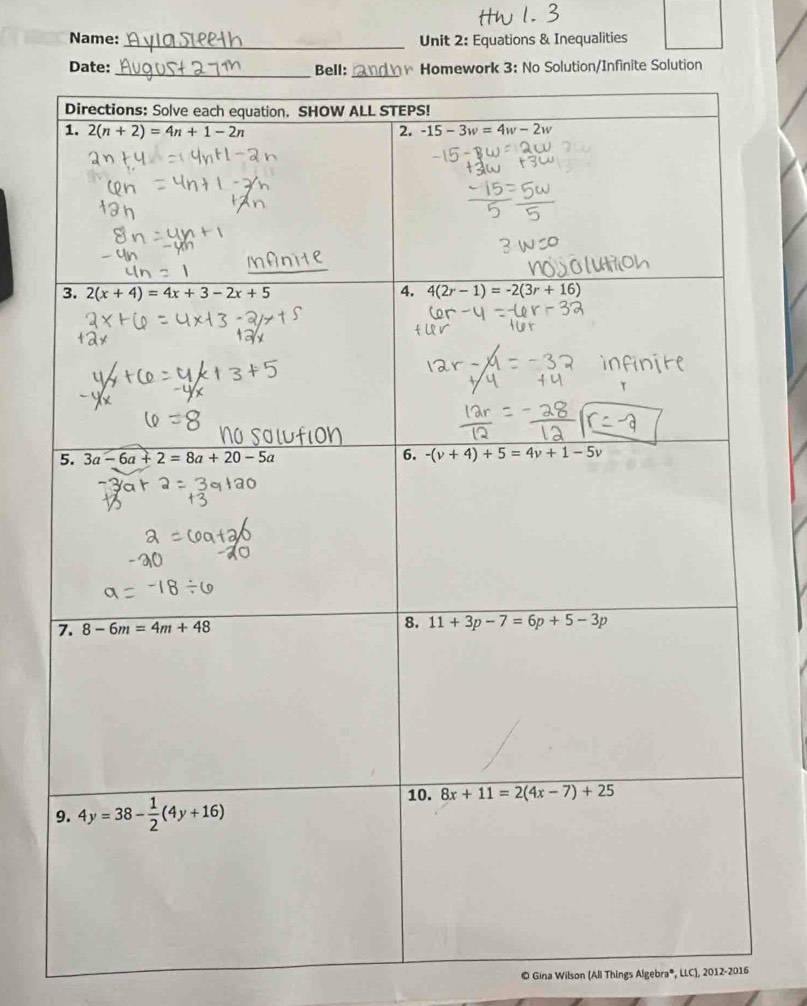 HW 1. 3
Name: Aylasleeth
Unit 2: Equations & Inequalities
Date: August 27th
Bell: Homework 3: No Solution/Infinite Solution
Directions: Solve each equation. SHOW ALL STEPS!
1. 2(n + 2) = 4n + 1 − 2n
2n + 4 = 4n+1-2n
6n = 4n + 1 -2n
+2n +2n
8n = 4n + 1
-4n -4n
4n = 1 infinite
2. -15 − 3w = 4w − 2w
-15 - 3w = 2w
+3w +3w
-15 = 5w
5 5
3 w=0
no solution
3. 2(x + 4) = 4x + 3 − 2x + 5
2x + 6 = 4x+3 -2x+5
+2x +2x
4x + 6 = 4x + 3 + 5
-4x -4x
6 = 8
no solution
4. 4(2r − 1) = -2(3r + 16)
6r - 4 = -6r - 32
+6r +6r
12r - 4 = -32 infinite
+4 +4
12r = -28 r = -2
12 12
5. 3a − 6a + 2 = 8a + 20 − 5a
-3a + 2 = 3a+20
+3 +3
2 = 6a+20
-20 -20
a = -18 ÷ 6
6. -(v + 4) + 5 = 4v + 1 − 5v
7. 8 − 6m = 4m + 48
8. 11 + 3p − 7 = 6p + 5 − 3p
9. 4y = 38 − 1/2 (4y + 16)
10. 8x + 11 = 2(4x − 7) + 25
© Gina Wilson (All Things Algebra®, LLC), 2012-2016